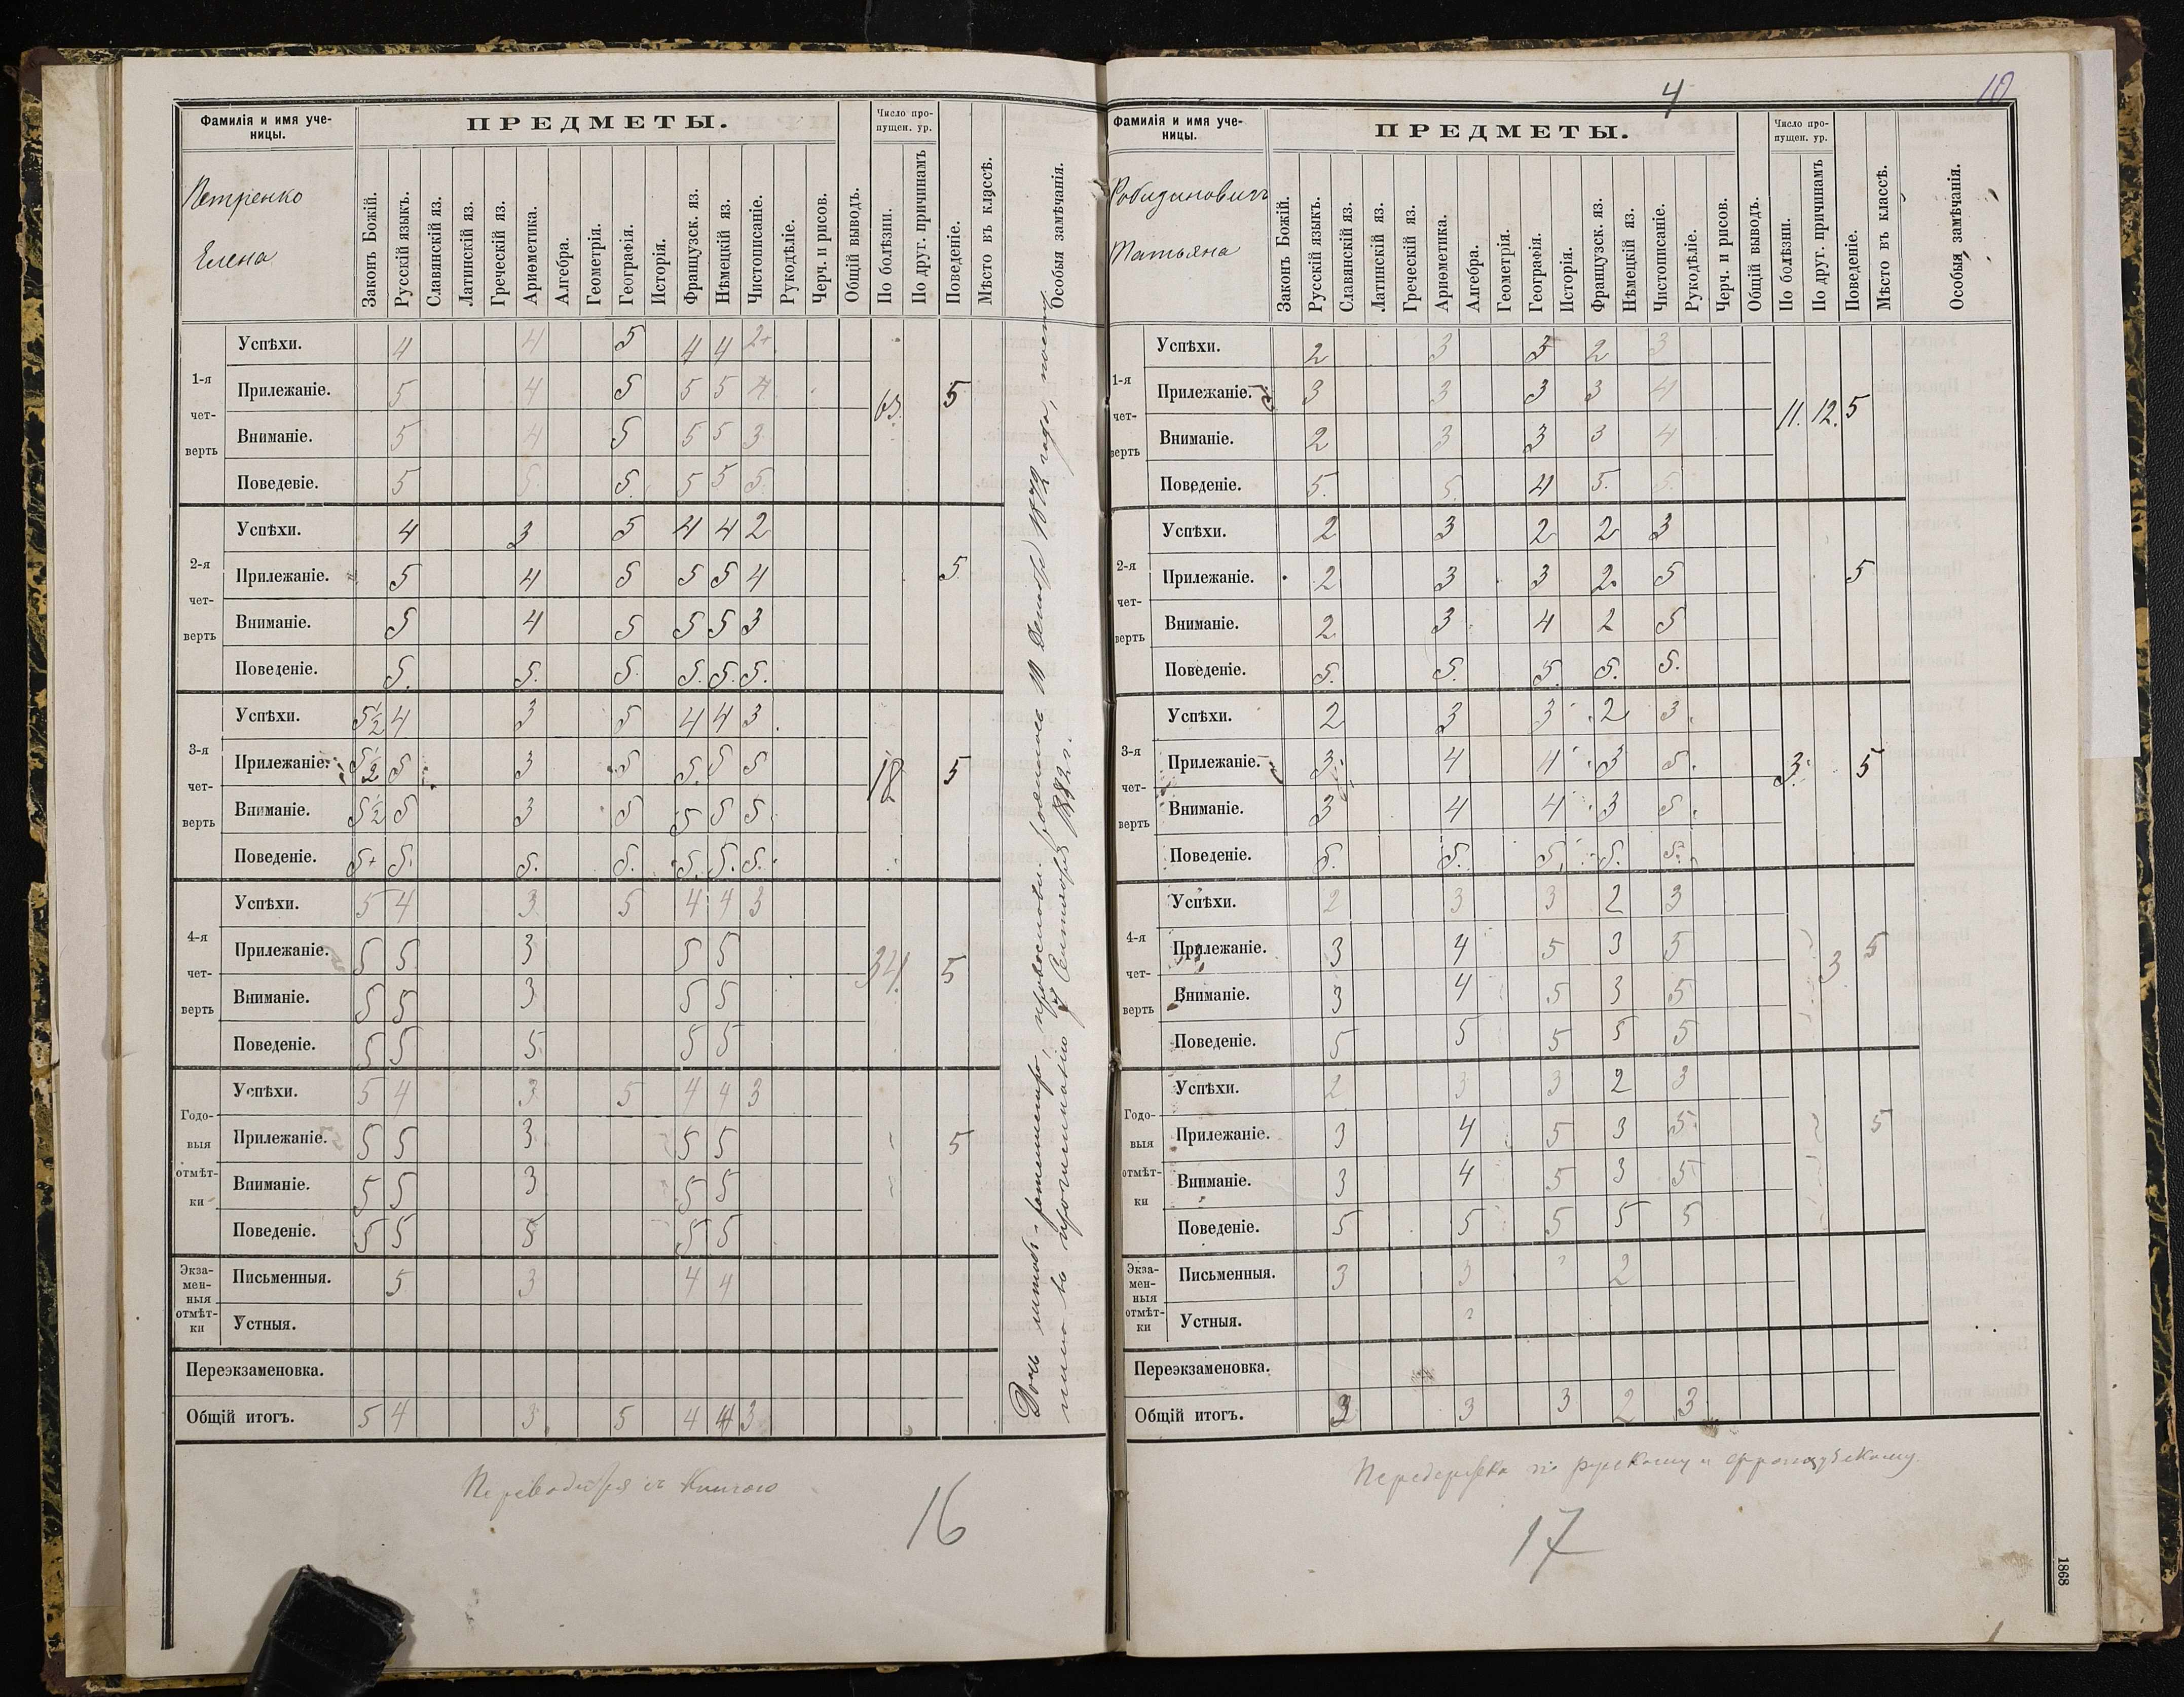 Фамилія и имя уче-
ницы.
ПРЕДМЕТЫ.
Число про-
пущен. ур.
Петренко
Елена
Законъ Божій.
Русскій языкъ.
Славянскій яз.
Латинскій яз.
Греческій яз.
Ариѳметика.
Алгебра.
Геометрія.
Географія.
Исторія.
Французск. яз.
Нѣмецкій яз.
Чистописаніе.
Рукодѣліе.
Черч. и рисов.
Общій выводъ.
По болѣзни.
По друг. причинамъ
Поведеніе.
Мѣсто въ классѣ.
Особыя замѣчанія.
1-я чет-верть
Успѣхи. 4 4 5 4 4 2+
Прилежаніе. 5 4 5 5 5 4 63. 5
Вниманіе. 5 4 5 5 5 3
Поведевіе. 5 5. 5. 5 5 5
2-я чет-верть
Успѣхи. 4 3 5 4 4 2
Прилежаніе. 5 4 5 5 5 4 5
Вниманіе. 5 4 5 5 5 3
Поведеніе. 5. 5. 5. 5. 5. 5.
3-я чет-верть
Успѣхи. 5½ 4 3 5 4 4 3
Прилежаніе. 5½ 5 3 5 5. 5 5 18 5
Вниманіе. 5½ 5 3 5 5 5 5
Поведеніе. 5+ 5. 5. 5. 5. 5. 5.
4-я чет-верть
Успѣхи. 5 4 3 5 4 4 3
Прилежаніе. 5 5 3 5 5 34. 5
Вниманіе. 5 5 3 5 5
Поведеніе. 5 5 5 5 5
Годо-выя отмѣт-ки
Успѣхи. 5 4 3 5 4 4 3
Прилежаніе. 5 5 3 5 5 5
Вниманіе. 5 5 3 5 5
Поведеніе. 5 5 5 5 5
Экза-мен-ныя отмѣт-ки
Письменныя. 5 3 4 4
Устныя.
Переэкзаменовка.
Общій итогъ. 5 4 3 5 4 4 3
1872 года,
1872 г.
16
4
10
Фамилія и имя уче-
ницы.
ПРЕДМЕТЫ.
Число про-
пущен. ур.
Татьяна
Законъ Божій.
Русскій языкъ.
Славянскій яз.
Латинскій яз.
Греческій яз.
Ариѳметика.
Алгебра.
Геометрія.
Географія.
Исторія.
Французск. яз.
Нѣмецкій яз.
Чистописаніе.
Рукодѣліе.
Черч. и рисов.
Общій выводъ.
По болѣзни.
По друг. причинамъ
Поведеніе.
Мѣсто въ классѣ.
Особыя замѣчанія.
1-я чет-верть
Успѣхи. 2 3 3 2 3
Прилежаніе. 3 3 3 3 4 11. 12. 5
Вниманіе. 2 3 3 3 4
Поведеніе. 5. 5. 4 5. 5.
2-я чет-верть
Успѣхи. 2 3 2 2 3
Прилежаніе. 2 3 3 2 5 5
Вниманіе. 2 3 4 2 5
Поведеніе. 5. 5. 5. 5. 5.
3-я чет-верть
Успѣхи. 2 3 3 2 3
Прилежаніе. 3 4 4 3 5. 3. 5
Вниманіе. 3 4 4 3 5
Поведеніе. 5. 5. 5. 5. 5.
4-я чет-верть
Успѣхи. 2 3 3 2 3
Прилежаніе. 3 4 5 3 5 3 5
Вниманіе. 3 4 5 3 5
Поведеніе. 5 5 5 5 5
Годо-выя отмѣт-ки
Успѣхи. 2 3 3 2 3
Прилежаніе. 3 4 5 3 5 5
Вниманіе. 3 4 5 3 5
Поведеніе. 5 5 5 5 5
Экза-мен-ныя отмѣт-ки
Письменныя. 3 3 2
Устныя.
Переэкзаменовка.
Общій итогъ. 3 3 2 3
17
1868